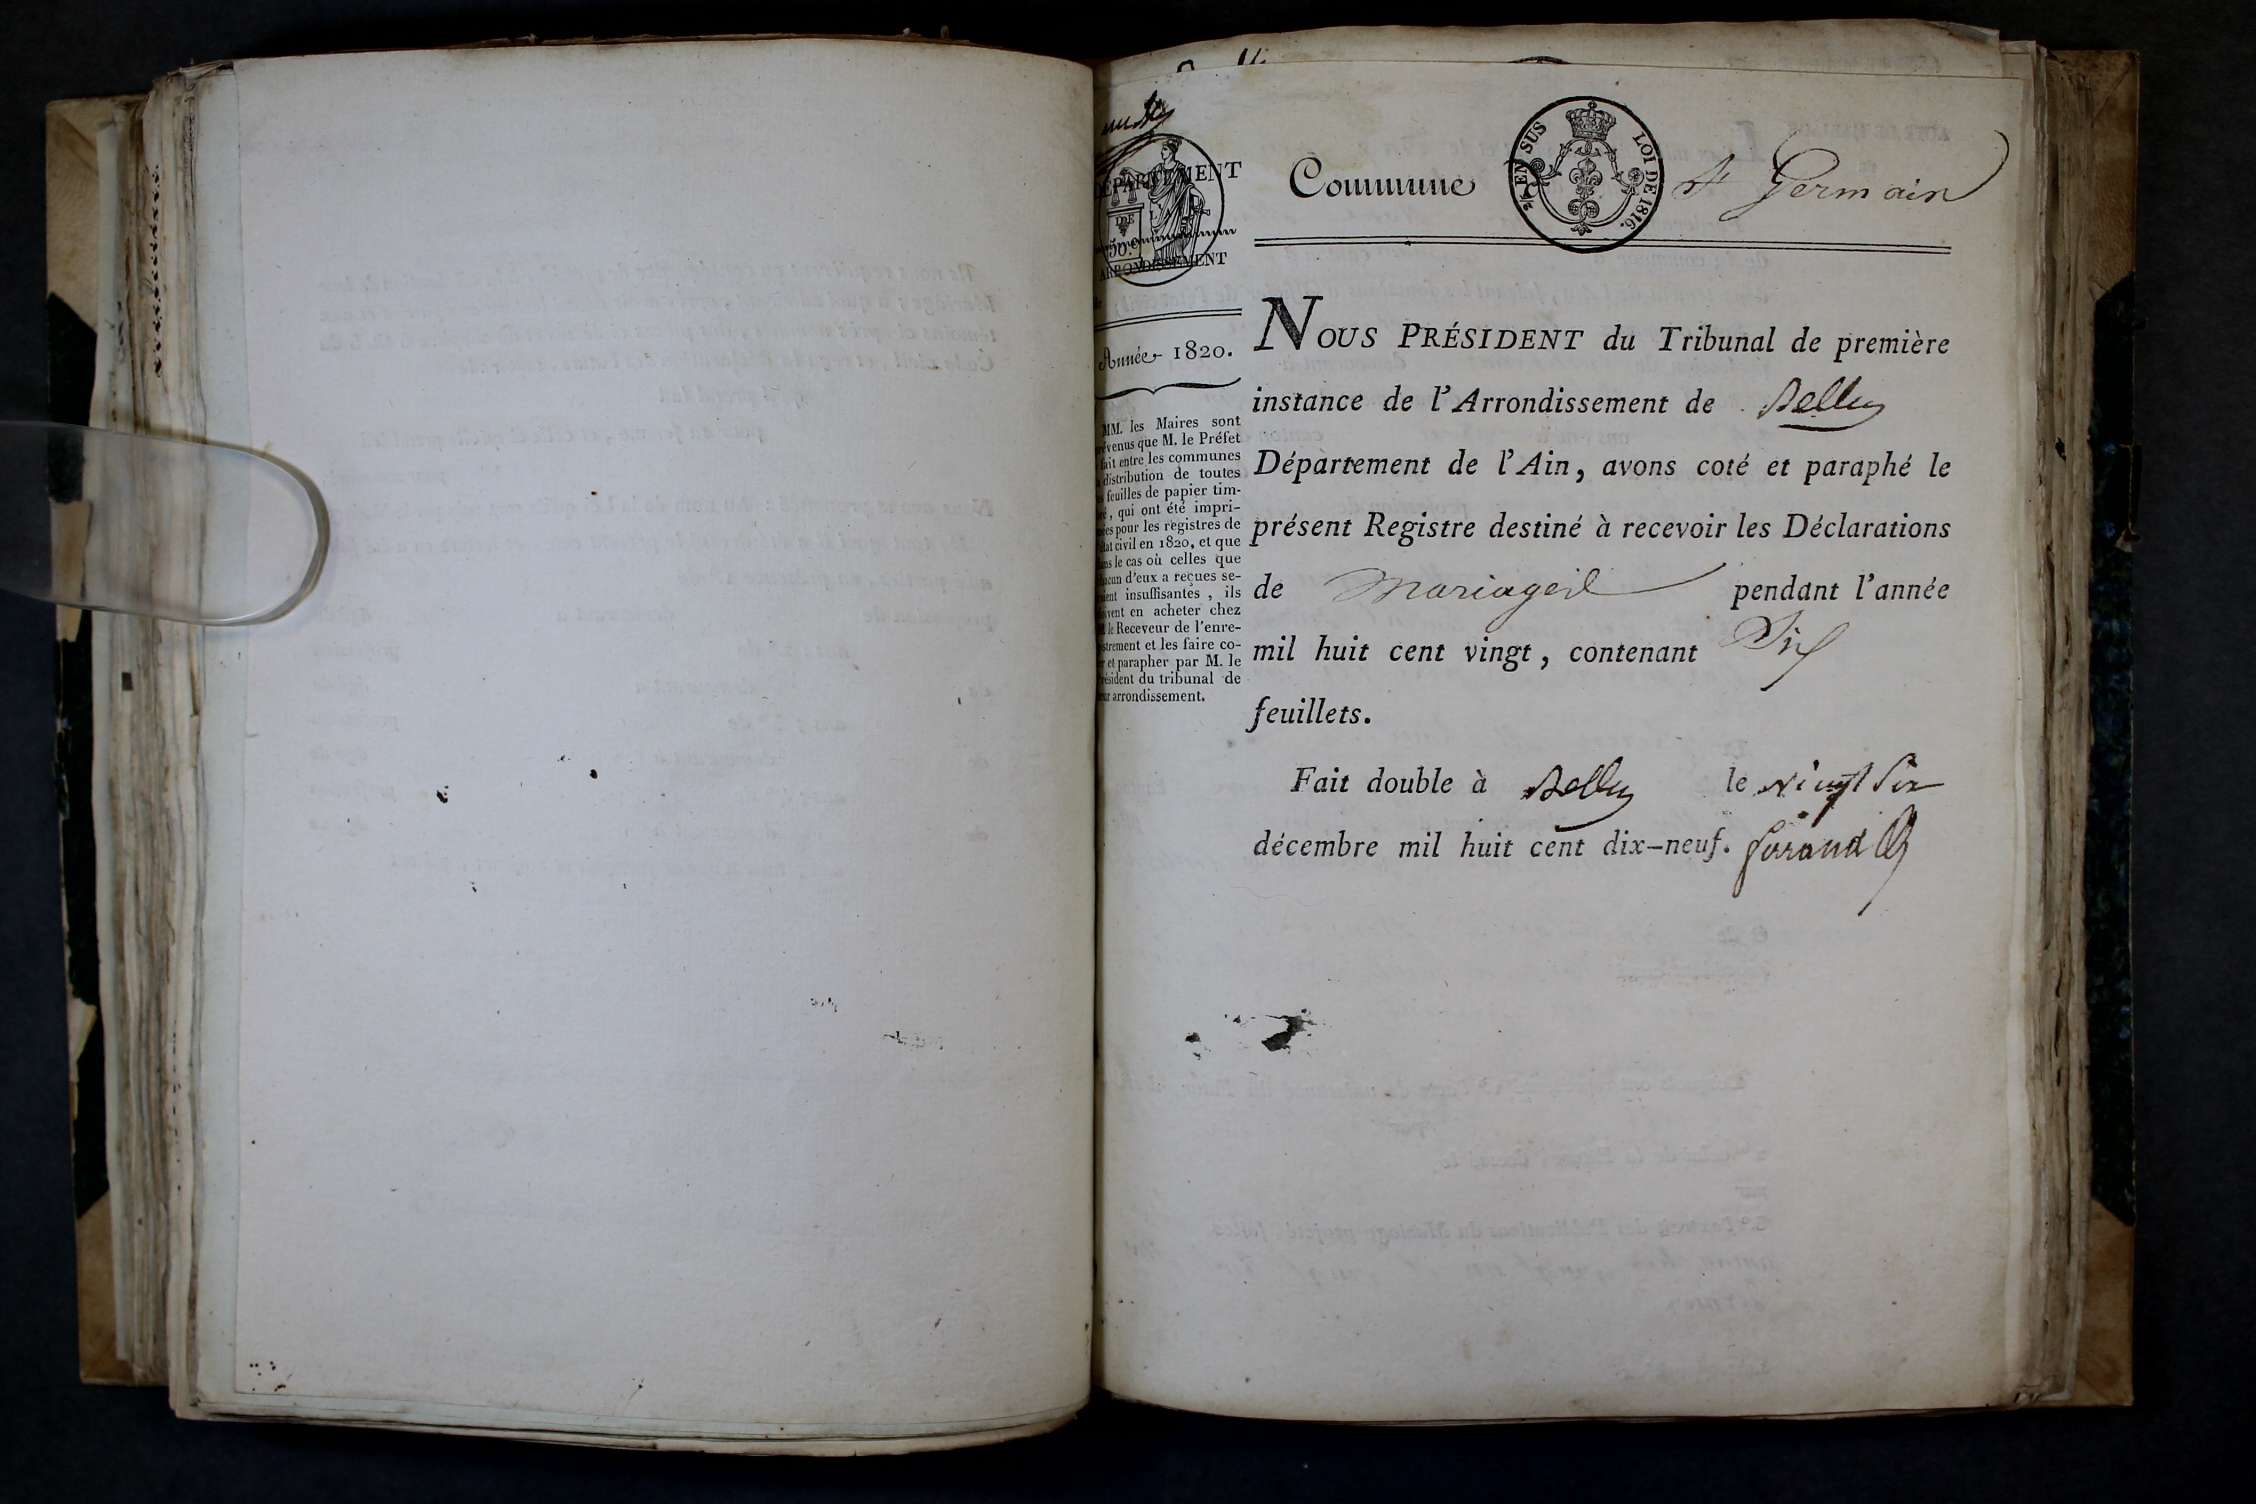 DÉPARTEMENT
DE
50.
ARRONDISSEMENT
Année 1820.
MM. les Maires sont
évenus que M. le Préfet
fait entre les communes
distribution de toutes
feuilles de papier tim-
, qui ont été impri-
pour les registres de
civil en 1820, et que
le cas où celles que
d'eux a reçues se-
insuffisantes, ils
en acheter chez
le Receveur de l'enre-
strement et les faire co-
et parapher par M. le
ésident du tribunal de
arrondissement.
Commune St Germain
EN SUS LOI DE 1816.
NOUS PRÉSIDENT du Tribunal de première
instance de l'Arrondissement de Belley
Département de l'Ain, avons coté et paraphé le
présent Registre destiné à recevoir les Déclarations
de Mariages pendant l'année
mil huit cent vingt, contenant Six
feuillets.
Fait double à Belley le vingt Six
décembre mil huit cent dix-neuf.